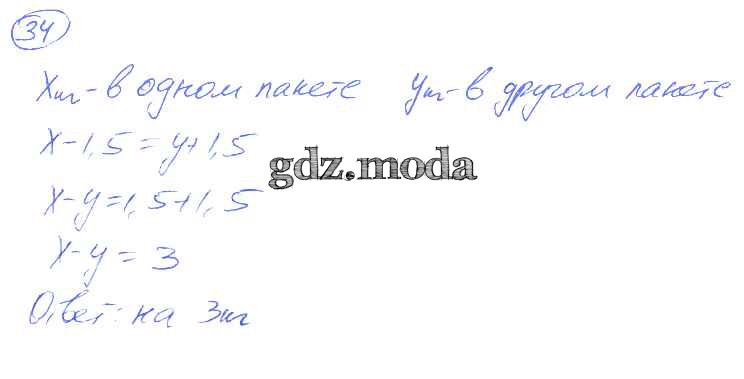 34
x кг - в одном пакете y кг - в другом пакете
x - 1,5 = y + 1,5
gdz.moda
x - y = 1,5 + 1,5
x - y = 3
Ответ: на 3 кг